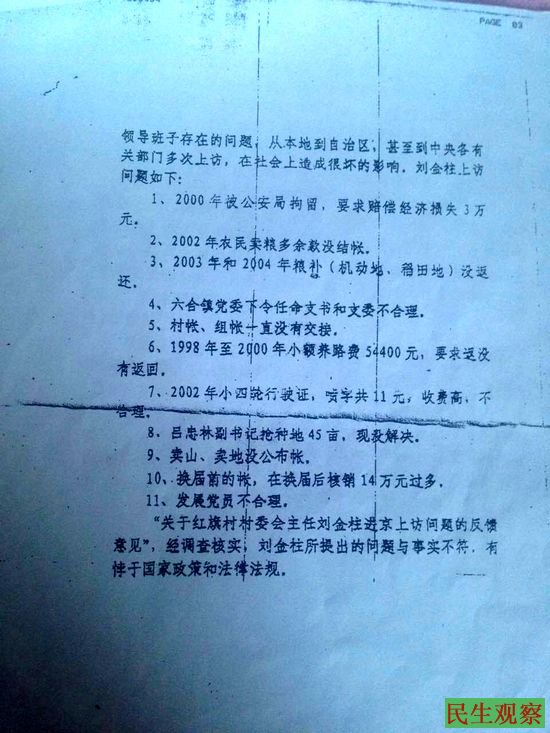 PAGE 03
领导班子存在的问题，从本地到自治区，甚至到中央各有
关部门多次上访，在社会上造成很坏的影响。刘金柱上访
问题如下：
1、2000年被公安局拘留，要求赔偿经济损失3万
元。
2、2002年农民卖粮多余款没结帐。
3、2003年和2004年粮补（机动地、稻田地）没返
还。
4、六合镇党委下令任命支书和支委不合理。
5、村帐、组帐一直没有交接。
6、1998年至2000年小额养路费54400元，要求返没
有返回。
7、2002年小四轮行驶证，喷字共11元，收费高，不
合理。
8、吕忠林副书记抢种地45亩，现没解决。
9、卖山、卖地没公布帐。
10、换届前的帐，在换届后核销14万元过多。
11、发展党员不合理。
“关于红旗村村委会主任刘金柱进京上访问题的反馈
意见”，经调查核实，刘金柱所提出的问题与事实不符，有
悖于国家政策和法律法规。
民生观察